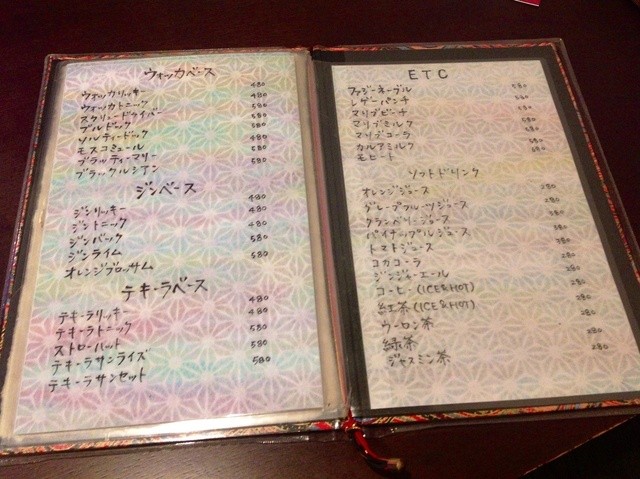 ウォッカベース
ウォッカリッキー 480
ウォッカトニック 480
スクリュードライバー 580
ブルドック 580
ソルティードック 480
モスコミュール 580
ブラッティーマリー 580
ブラックルシアン
ジンベース
ジンリッキー 480
ジントニック 480
ジンバック 580
ジンライム 580
オレンジブロッサム
テキーラベース
テキーラリッキー 480
テキーラトニック 480
ストローハット 580
テキーラサンライズ 580
テキーラサンセット
ETC
ファジーネーブル 580
レゲーパンチ 580
マリブピーチ 580
マリブミルク 580
マリブコーラ 580
カルアミルク 580
モヒート
ソフトドリンク
オレンジジュース 280
グレープフルーツジュース 280
クランベリージュース 280
パイナップルジュース 280
トマトジュース 280
コカコーラ 280
ジンジャーエール 280
コーヒー(ICE&HOT) 280
紅茶(ICE&HOT) 280
ウーロン茶 280
緑茶 280
ジャスミン茶